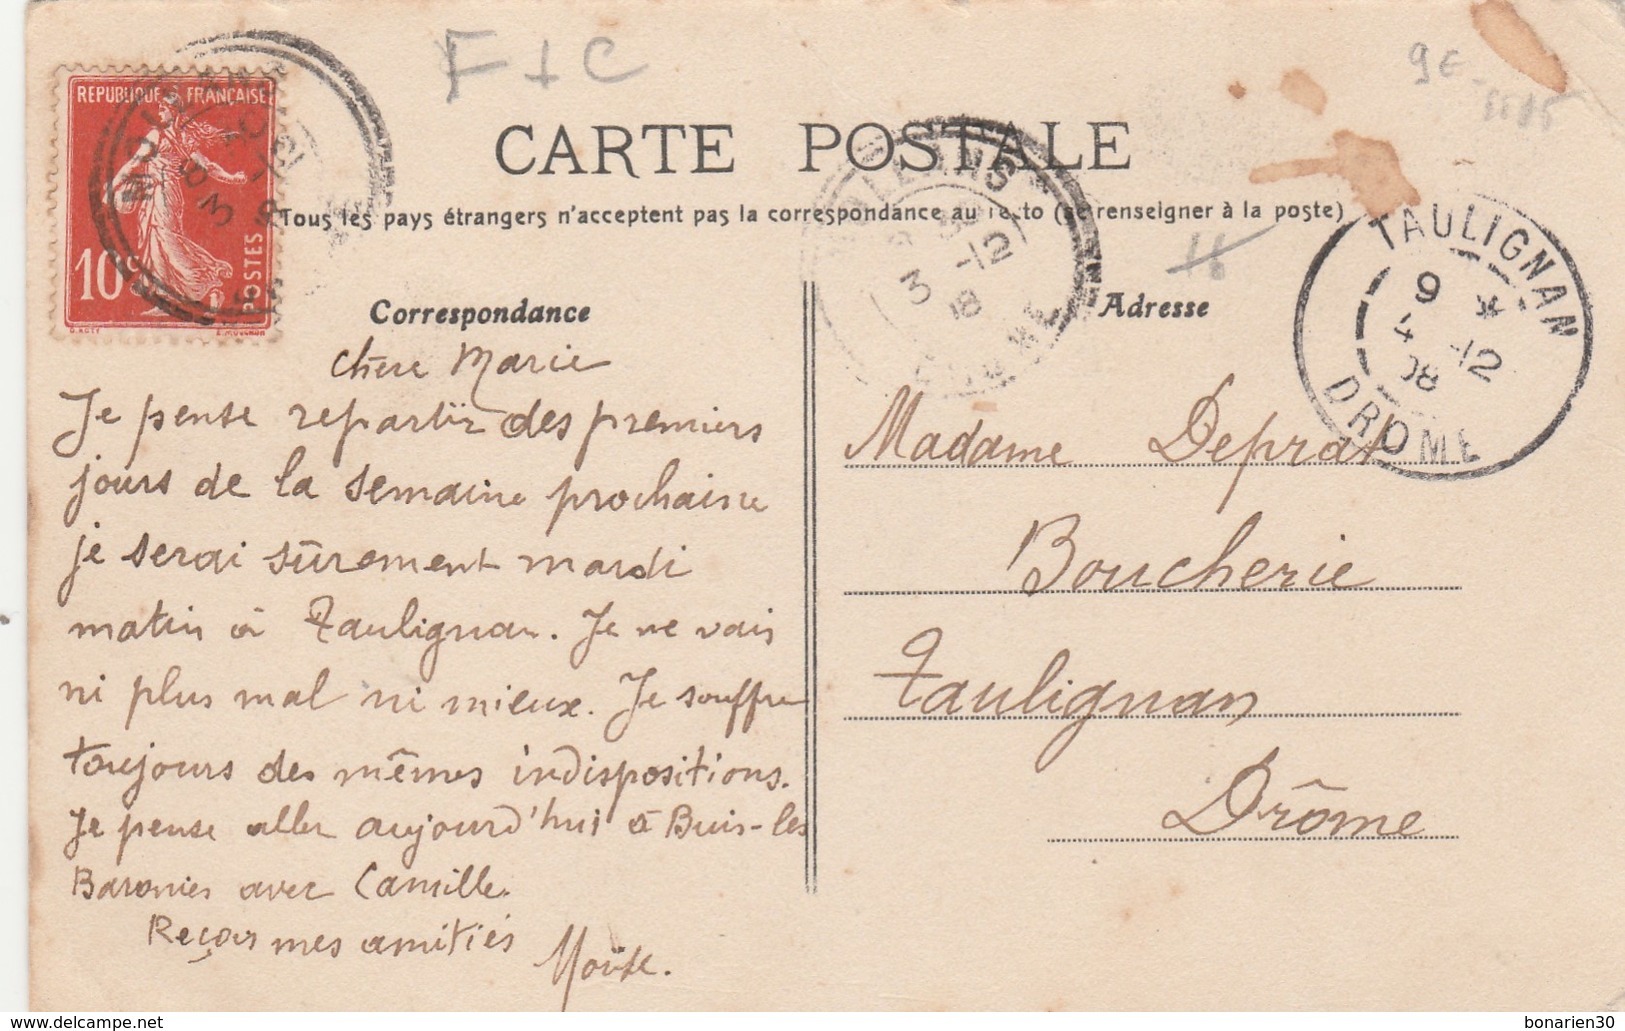 F + C
9€
REPUBLIQUE FRANÇAISE
10c
POSTES
CARTE POSTALE
Tous les pays étrangers n'acceptent pas la correspondance au recto (se renseigner à la poste)
3 -12
TAULIGNAN
9 *
4 -12
08
DROME
Correspondance
Adresse
chère Marie
Je pense repartir des premiers
jours de la semaine prochaine
je serai sûrement mardi
matin à Taulignan. Je ne vais
ni plus mal ni mieux. Je souffre
toujours des mêmes indispositions.
Je pense aller aujourd'hui à Buis-les
Baronies avec Camille.
Reçois mes amitiés
Madame Deprat
Boucherie
Taulignan
Drôme
bonarien30